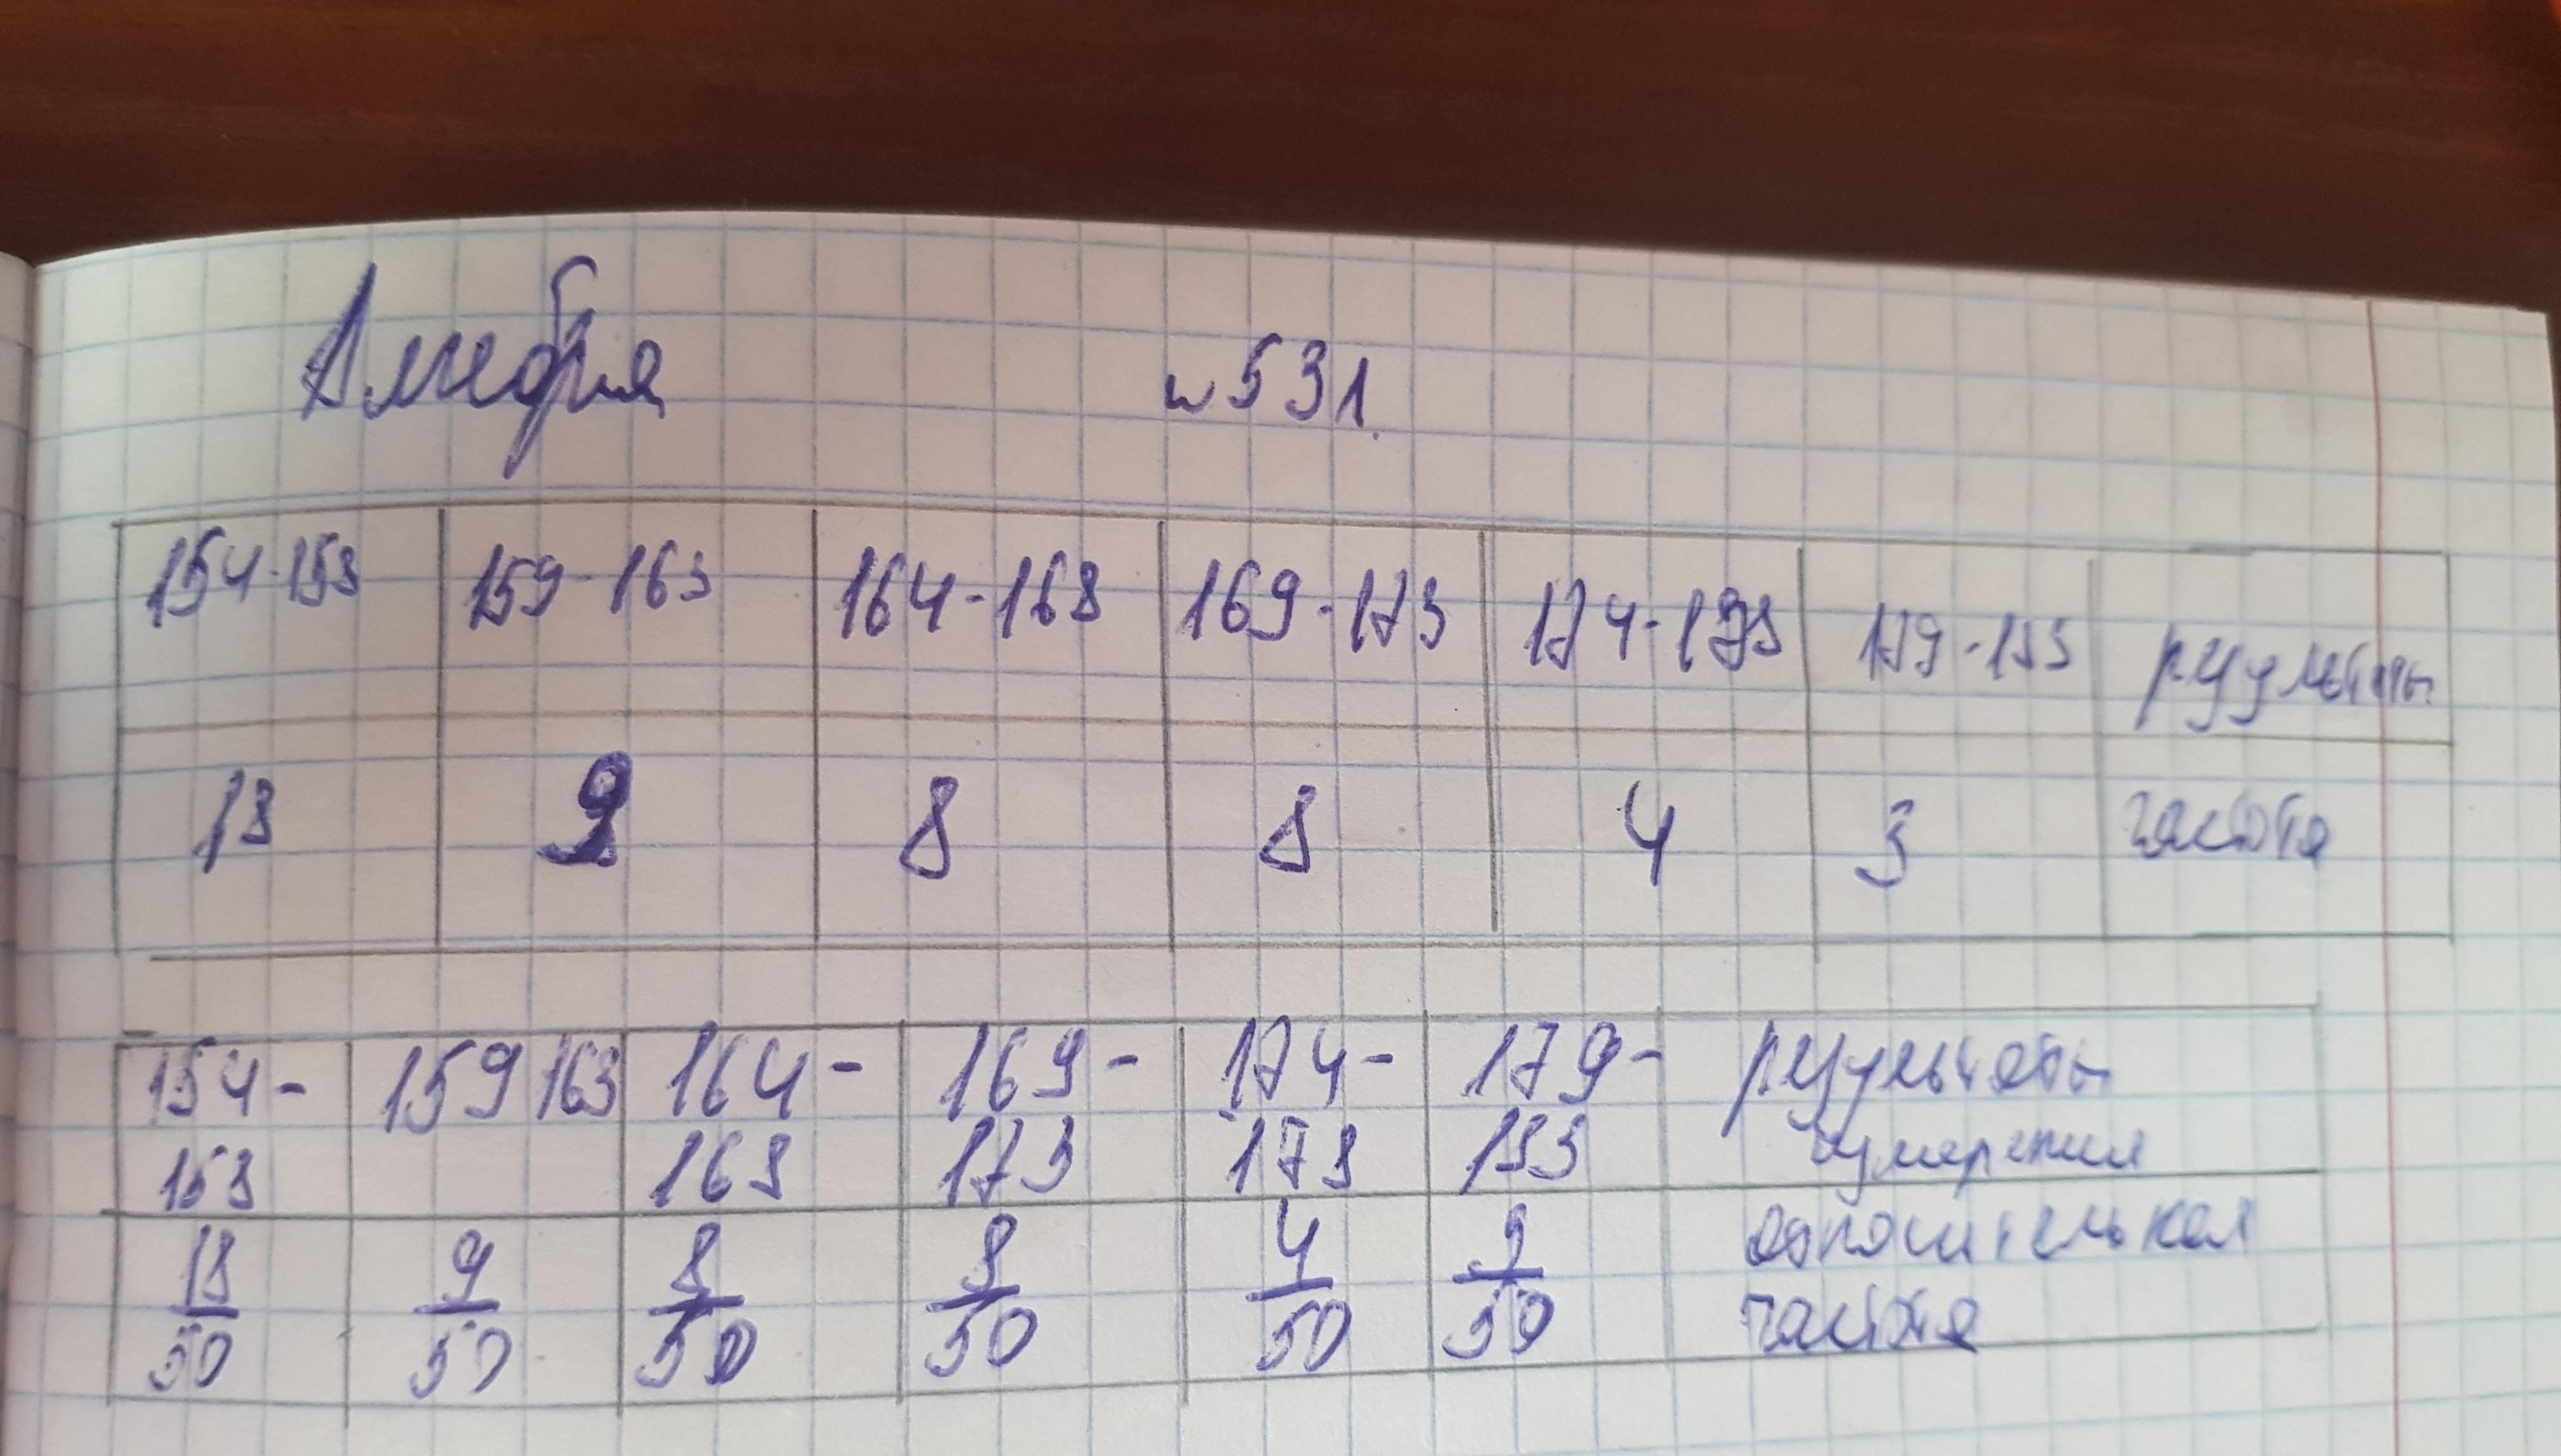 Алгебра
№ 531.
154-158 159-163 164-168 169-173 174-178 179-183 результаты
18 9 8 8 4 3 частота
154- 159 163 164- 169- 174- 179- результаты
158 168 173 178 183 измерения
18/50 9/50 8/50 8/50 4/50 3/50 относительная
частота